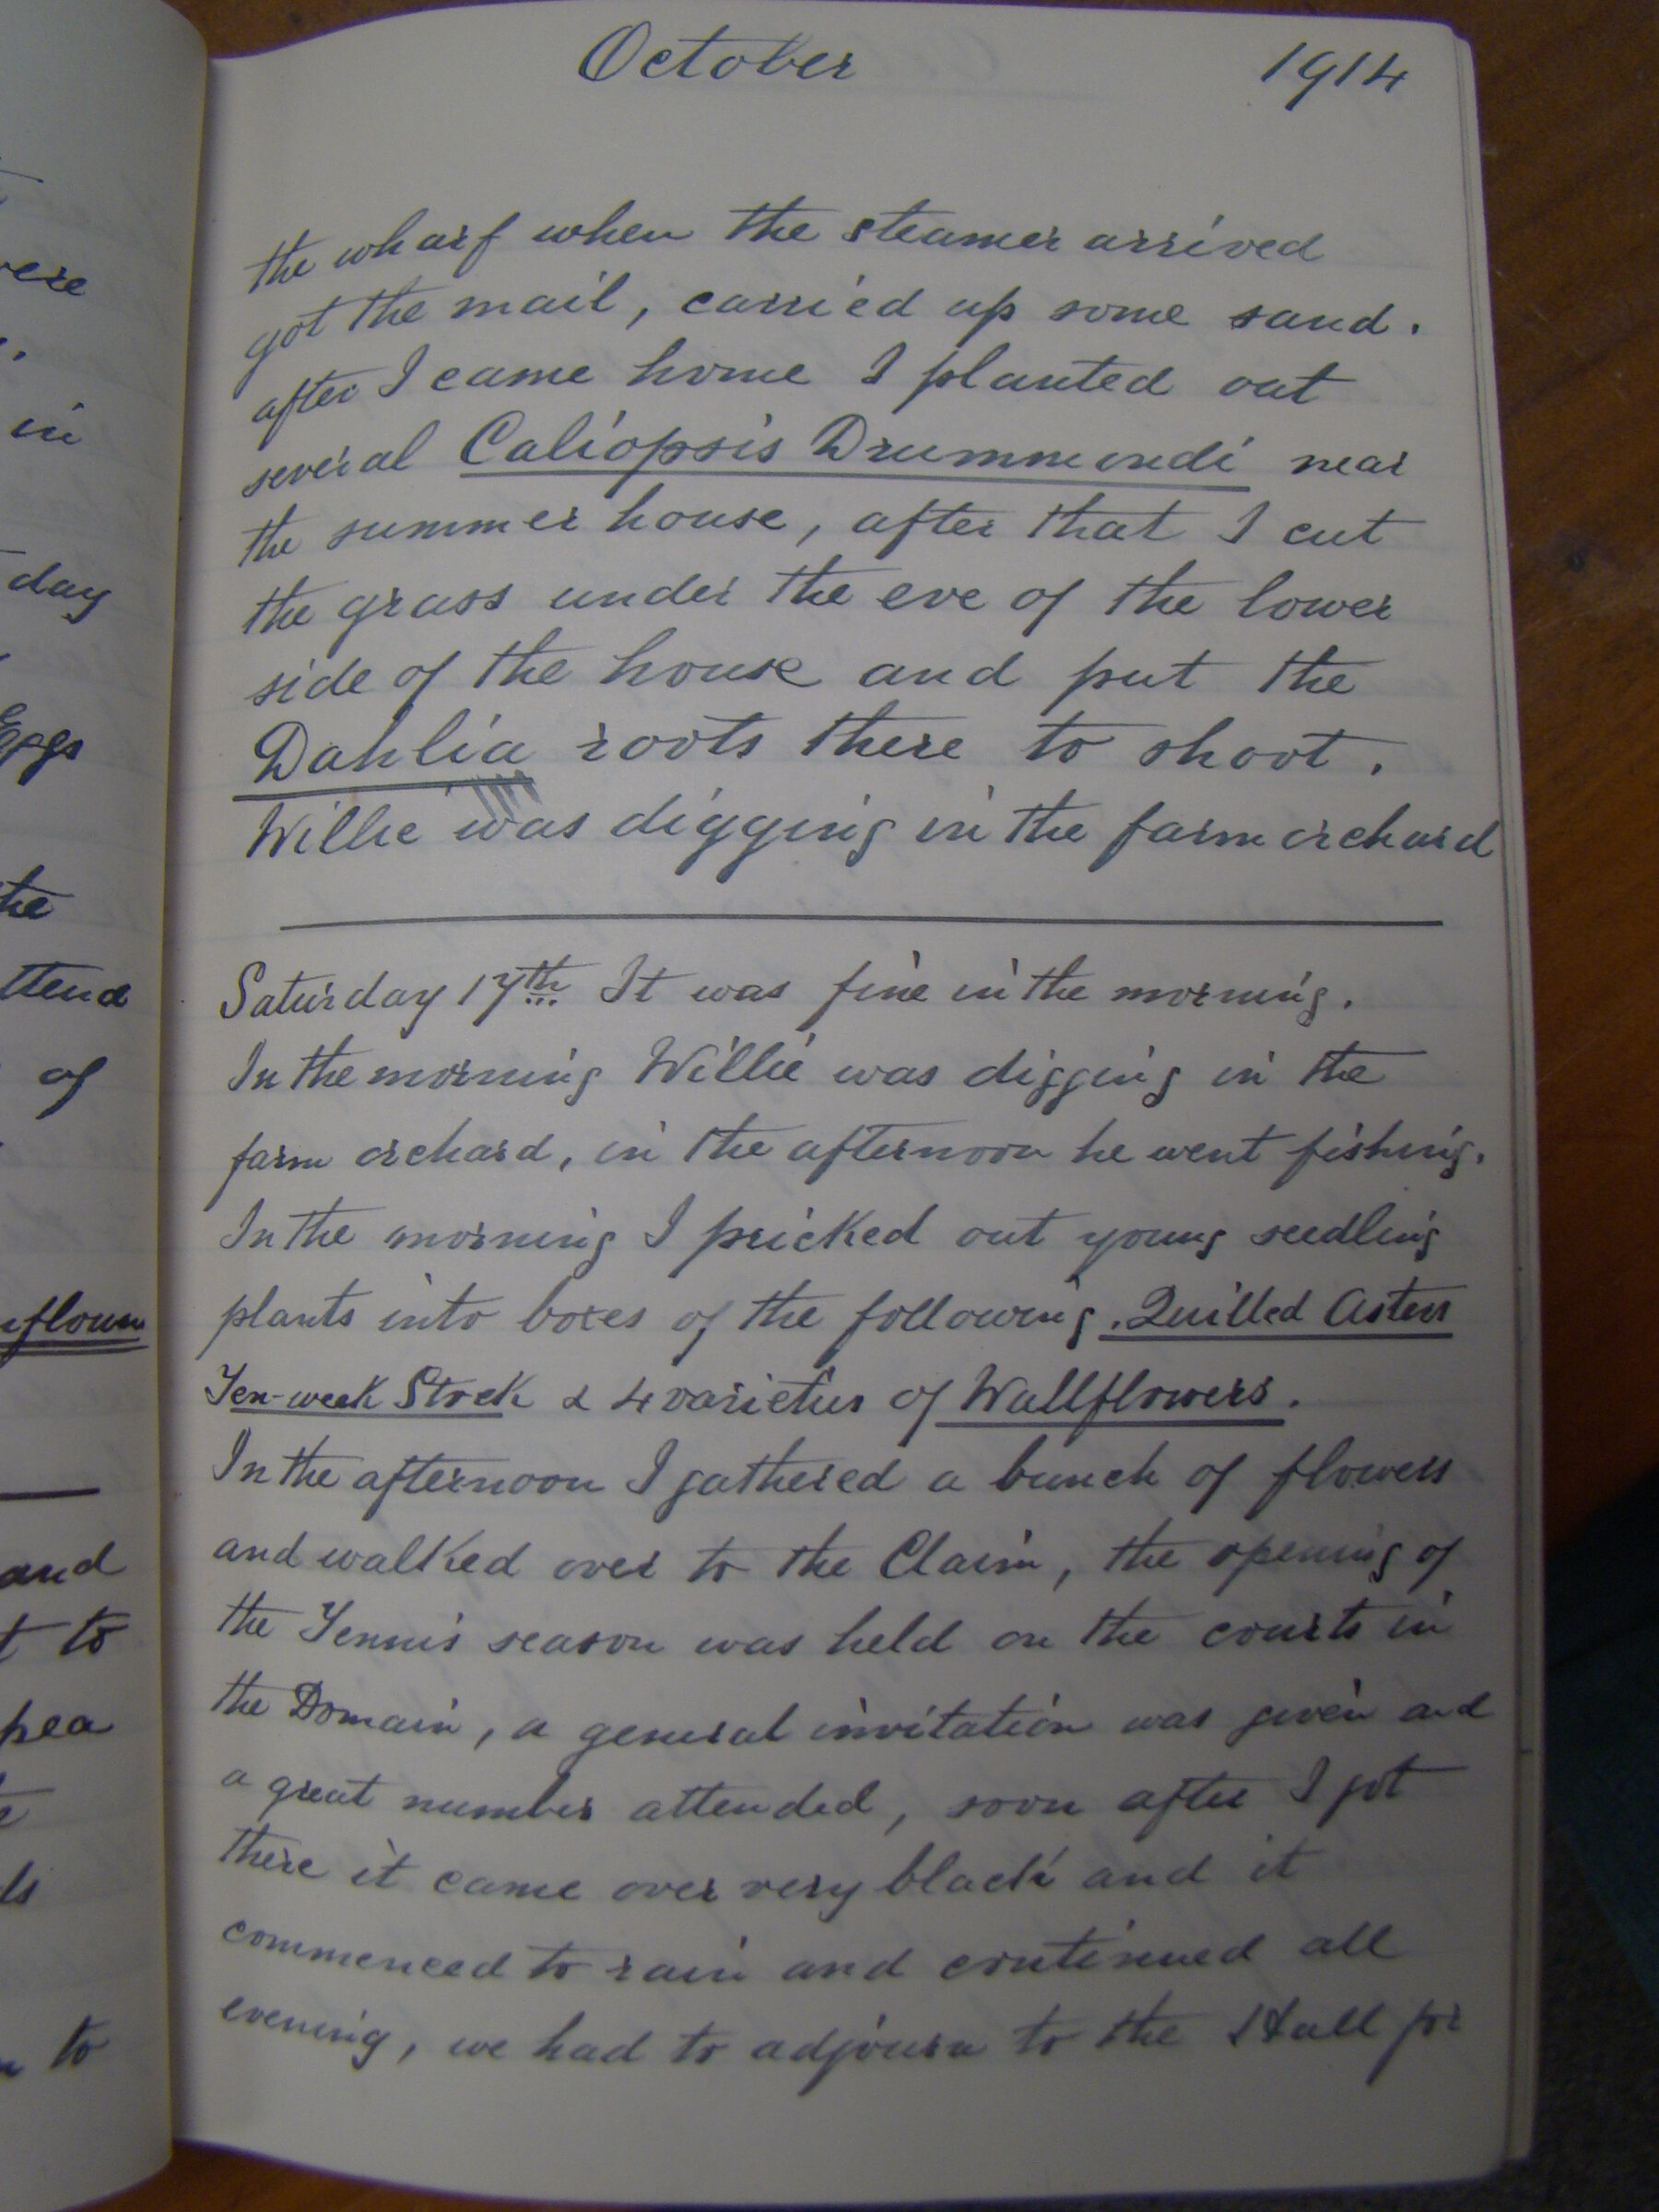 October 1914
the wharf when the steamer arrived
got the mail, carried up some sand.
after I came home I planted out
several Caliopsis Drummondi near
the summer house, after that I cut
the grass under the eve of the lower
side of the house and put the
Dahlia roots there to shoot.
Willie was digging in the farm orchard
Saturday 17th It was fine in the morning.
In the morning Willie was digging in the
farm orchard, in the afternoon he went fishing.
In the morning I pricked out young seedling
plants into boxes of the following. Quilled Asters
Ten-week Stock & 4 varieties of Wallflowers.
In the afternoon I gathered a bunch of flowers
and walked over to the Claim, the opening of
the Tennis season was held on the courts in
the Domain, a general invitation was given and
a great number attended, soon after I got
there it came over very black and it
commenced to rain and continued all
evening, we had to adjourn to the Hall for
in
day
Eggs
the
ttend
of
and
t to
pea
ls
to